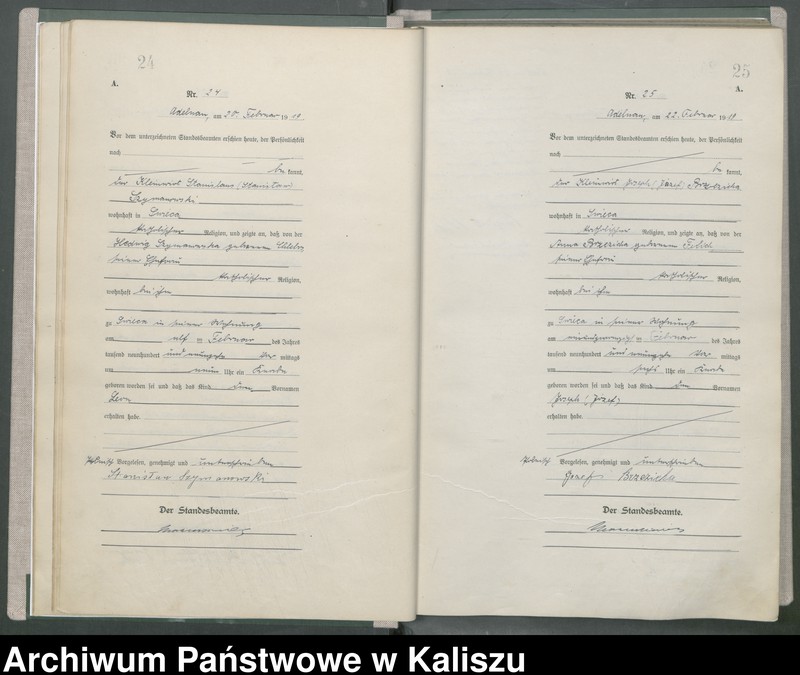 24
A.
Nr. 24
Adelnau, am 20. Februar 1919
Vor dem unterzeichneten Standesbeamten erschien heute, der Persönlichkeit
nach
be kannt,
der Kleinwirt Stanislaus (Stanisław)
Szymanowski
wohnhaft in
katholischer Religion, und zeigte an, daß von der
Hedwig Szymanowska geborenen
seiner Ehefrau
katholischer Religion,
wohnhaft bei ihm
zu in seiner Wohnung
am elf ten Februar des Jahres
tausend neunhundert und neunzehn Vor mittags
um neun Uhr ein Knabe
geboren worden sei und daß das Kind den Vornamen
Leon
erhalten habe.
Polnisch Vorgelesen, genehmigt und unterschrieben
Stanisław Szymanowski
Der Standesbeamte.
25
A.
Nr. 25
Adelnau, am 22. Februar 1919
Vor dem unterzeichneten Standesbeamten erschien heute, der Persönlichkeit
nach
be kannt,
der Kleinwirt Joseph (Józef) Brzezicha
wohnhaft in
katholischer Religion, und zeigte an, daß von der
Anna Brzezicha geborenen
seiner Ehefrau
katholischer Religion,
wohnhaft bei ihm
zu in seiner Wohnung
am ten Februar des Jahres
tausend neunhundert und neunzehn Vor mittags
um sechs Uhr ein Knabe
geboren worden sei und daß das Kind den Vornamen
Joseph (Józef)
erhalten habe.
Polnisch Vorgelesen, genehmigt und unterschrieben
Jozef Brzezicha
Der Standesbeamte.
Archiwum Państwowe w Kaliszu